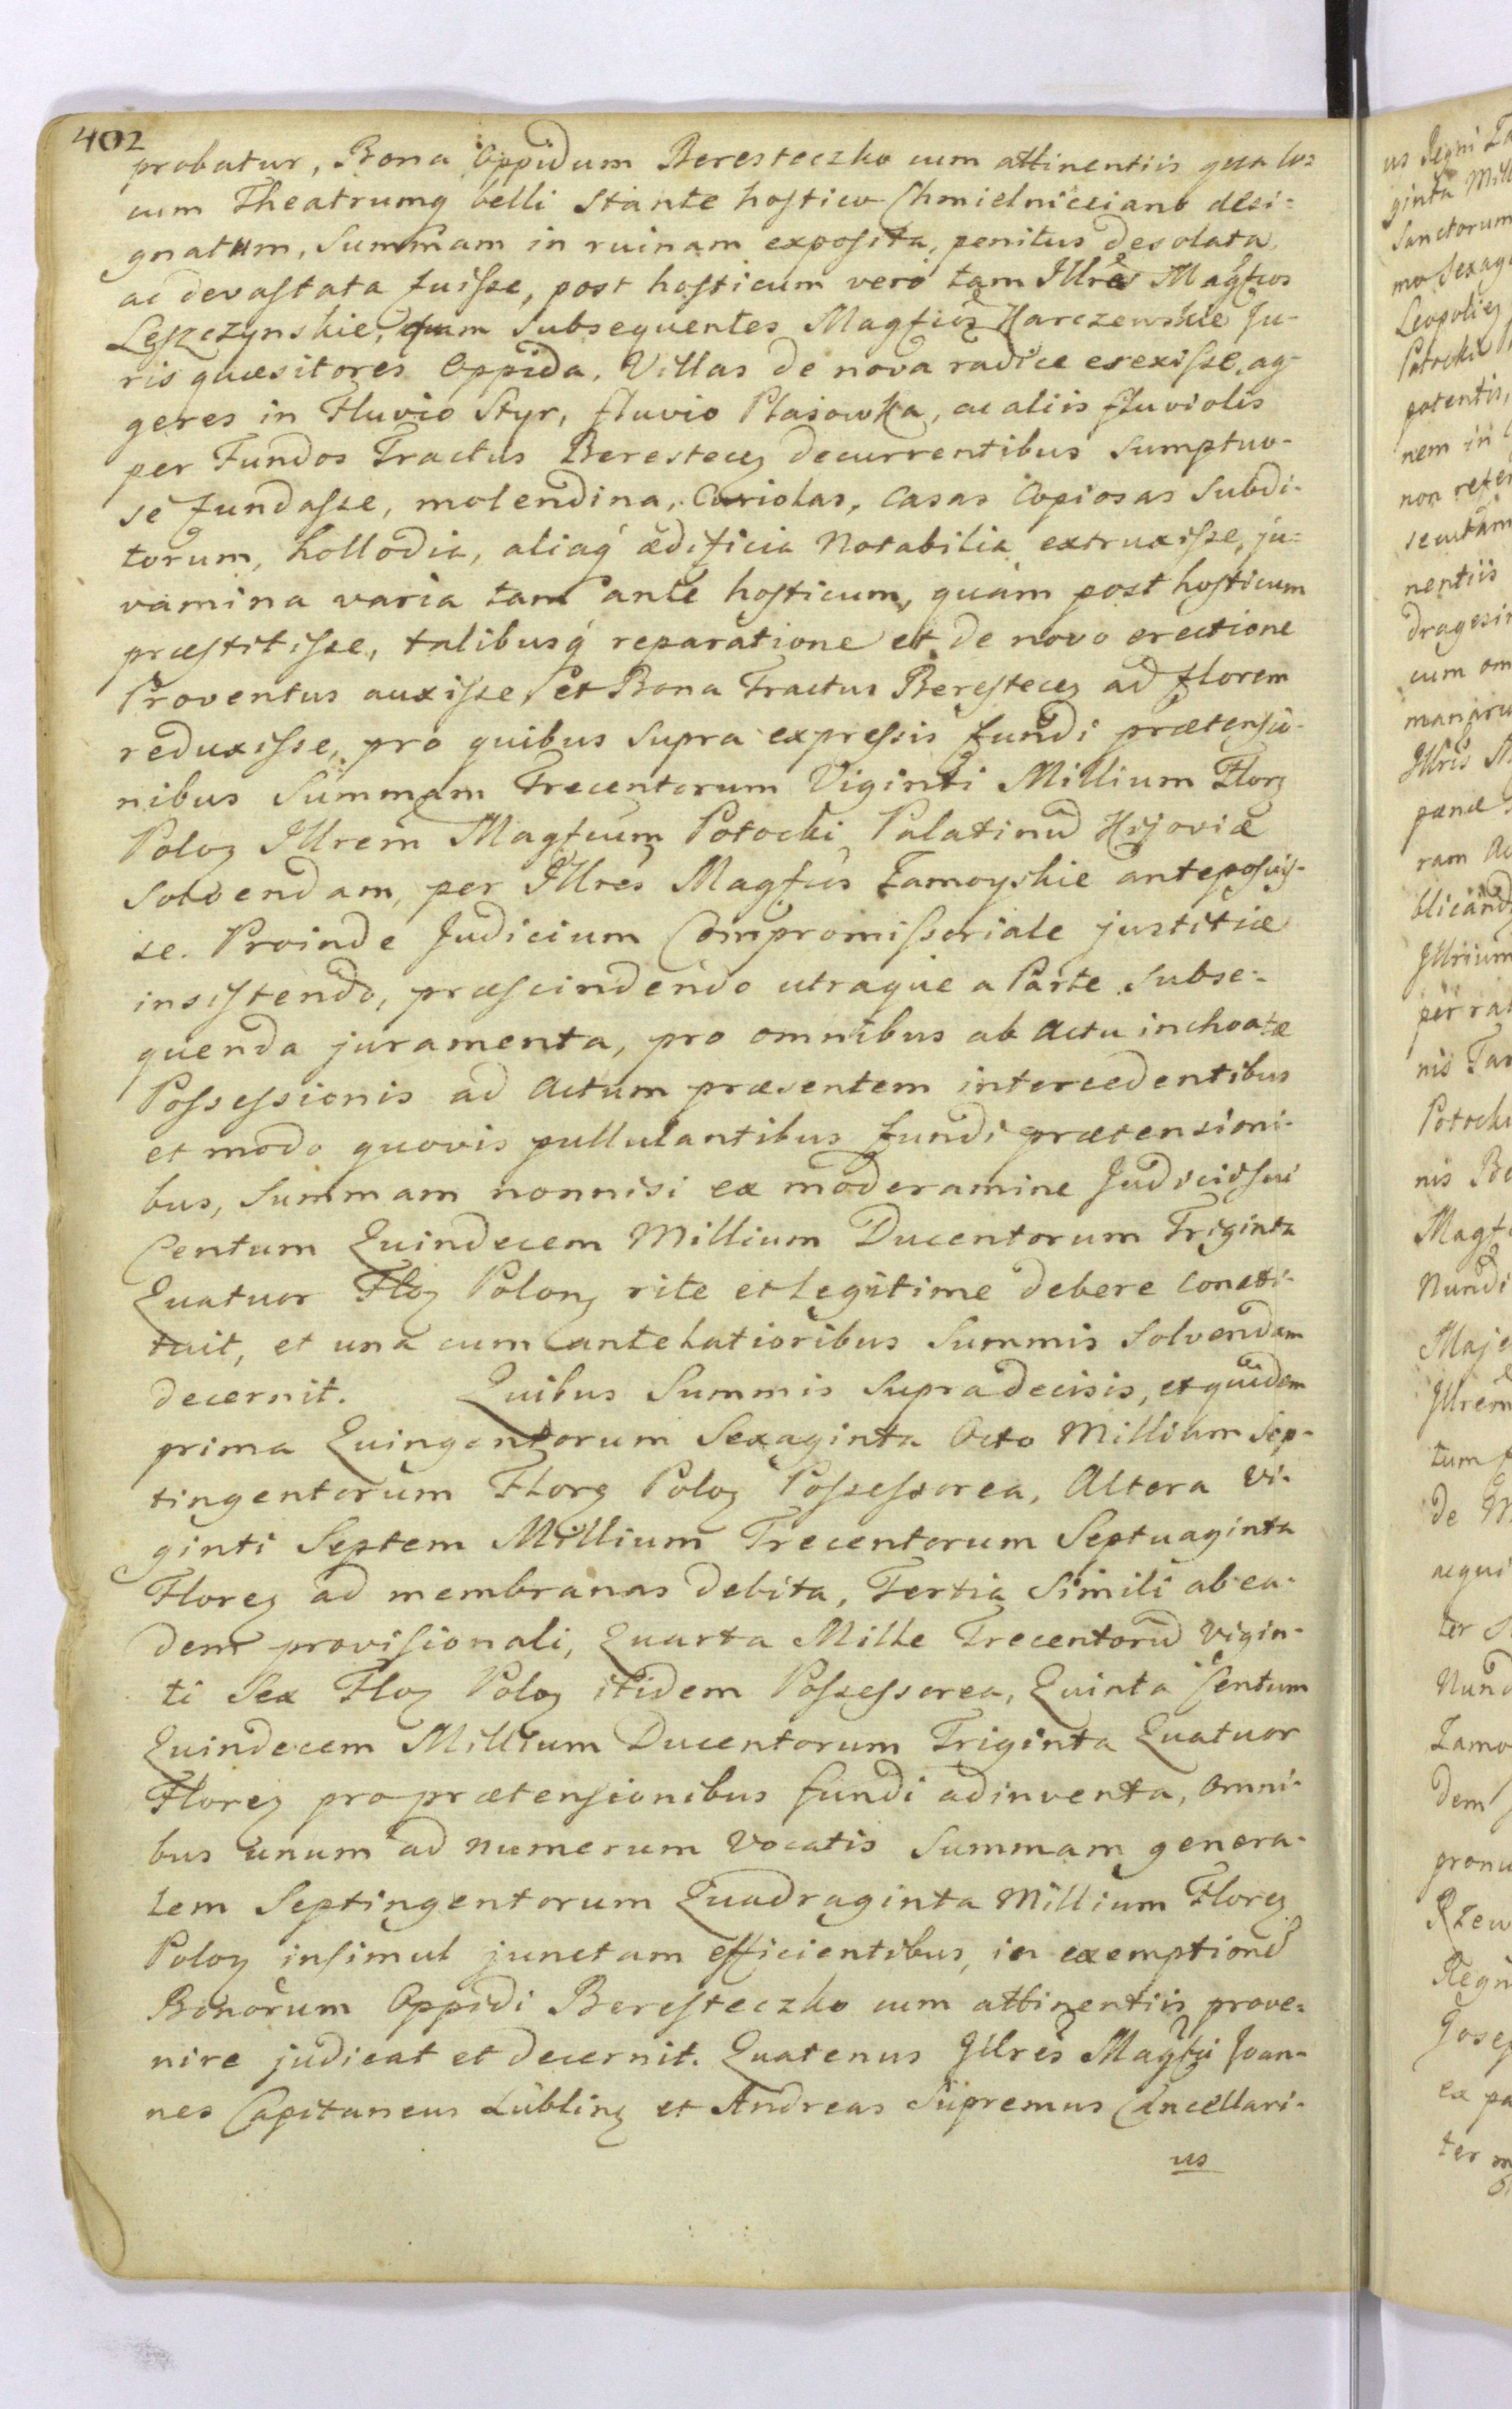 402
probatur, Bona Oppidum Beresteczko cum attinentiis qua lo=
cum Theatrumq belli stante hostico Chmielniceiano desi=
gnatum, Summam in ruinam exposita, penitus desolata
ac devastata fuisse, post hosticum vero tam Illres Magfcos
Leszczynskie, quam subsequentes Magfcos Karczewskie Ju-
ris quæsitores Oppida, Villas de nova radice erexisse, ag-
geres in Fluvio Styr, fluvio Plasowka, ac aliis fluviolis
per Fundos Tractus Berestecz decurrentibus sumptuo-
sè fundasse, molendina, Curiolas, Casas Copiosas Subdi-
torum, hollodia, aliaq ædificia Notabilia extruxisse, ju=
vamina varia tam ante hosticum, quàm post hosticum
præstitisse, talibusq reparatione et de novo erectione
Proventus auxisse, et Bona Tractus Berestecz ad florem
reduxisse, pro quibus supra expressis fundi prætensio-
nibus Summam Trecentorum Viginti Millium Florz
Poloz Illrem Magfcum Potocki Palatinum Kijoviæ
solvendam, per Illres Magfcos Zamoyskie anteposuis-
se. Proinde Judicium Compromissoriale justitiæ
insistendo, præscindendo utraque a Parte subse-
quenda juramenta, pro omnibus ab actu inchoatæ
Possessionis ad actum præsentem intercedentibus
et modo quovis pullulantibus fundi prætensioni-
bus, Summam nonnisi ex moderamine Judicii sui
Centum Quindecem Millium Ducentorum Triginta
Quatuor Floz Polonz rite et legitime debere consti-
tuit, et una cum antelatioribus Summis solvendam
decernit. Quibus Summis supradecisis, et quidem
prima Quingentorum Sexaginta Octo Millium Sep-
tingentorum Florz Poloz Possessorea, Altera Vi-
ginti Septem Millium Trecentorum Septuaginta
Florez ad membranas debita, Tertia Simili ab ea-
dem provisionali, Quarta Mille Trecentorum Vigin-
ti Sex Floz Poloz itidem Possessorea, Quinta Centum
Quindecem Millium Ducentorum Triginta Quatuor
Florez pro prætensionibus fundi adinventa, Omni-
bus unum ad numerum Vocatis Summam genera-
lem Septingentorum Quadraginta Millium Florez
Poloz insimul junctam efficientibus, in exemptione
Bonorum Oppidi Beresteczko cum attinentiis prove=
nire judicat et decernit. Quatenus Illres Magfci Joan-
nes Capitaneus Lublinz et Andreas Supremus Cancellari-
us